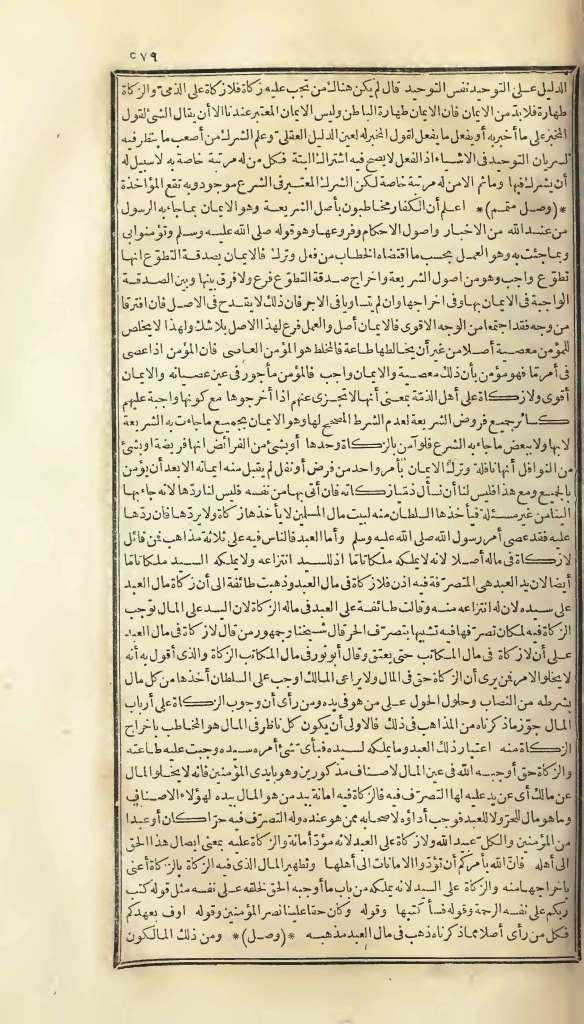 ٥٧٩
الدليل على التوحيد نفس التوحيد قال لم يكن هنالك من تجب عليه زكاة فلا زكاة على الذمى والزكاة
طهارة فلا بد من الايمان فان الايمان طهارة الباطن وليس الايمان المعتبر عندنا الا أن يقال الشئ لقول
المخبر على ما أخبر به أو يفعل ما يفعل لقول المخبر له لعين الدليل العقلى وعلم الشرك من أصعب ما ينظر فيه
لسريان التوحيد فى الاشياء اذ الفعل لا يصح فيه اشتراك البتة فكل من له مرتبة خاصة به لا سبيل له
أن يشرك فيها وما ثم الا من له مرتبة خاصة لكن الشرك المعتبر فى الشرع موجود وبه تقع المؤاخذة
*(وصل متمم)* اعلم أن الكفار مخاطبون بأصل الشريعة وهو الايمان بما جاء به الرسول
من عند الله من الاخبار واصول الاحكام وفروعها وهو قوله صلى الله عليه وسلم وتؤمنوا بى
وبما جئت به وهو العمل بحسب ما اقتضاه الخطاب من فعل وترك فالايمان بصدقة التطوع انها
تطوع واجب وهو من اصول الشريعة واخراج صدقة التطوع فرع ولا فرق بينها وبين الصدقة
الواجبة فى الايمان بها وفى اخراجها وان لم يتساويا فى الاجر فان ذلك لا يقدح فى الاصل فان افترقا
من وجه فقد اجتمعا من الوجه الاقوى فالايمان أصل والعمل فرع لهذا الاصل بلا شك ولهذا لا يخلص
للمؤمن معصية أصلا من غير أن يخالطها طاعة فالمخلط هو المؤمن العاصى فان المؤمن اذا عصى
فى أمر ما فهو مؤمن بأن ذلك معصية والايمان واجب فالمؤمن مأجور فى عين عصيانه والايمان
أقوى ولا زكاة على أهل الذمة بمعنى أنها لا تجزى عنهم اذا أخرجوها مع كونها واجبة عليهم
كسائر جميع فروض الشريعة لعدم الشرط المصحح لها وهو الايمان بجميع ما جاءت به الشريعة
لا بها ولا ببعض ما جاء به الشرع فلو آمن بالزكاة وحدها أو بشئ من الفرائض انها فريضة او بشئ
من النوافل أنها نافلة وترك الايمان بأمر واحد من فرض أو نفل لم يقبل منه ايمانه الا بعد أن يؤمن
بالجميع ومع هذا فليس لنا أن نسأل ذميا زكاته فان أتى بها من نفسه فليس لنا ردها لانه جاء بها
الينا من غير مسئلة فيأخذها السلطان منه لبيت مال المسلمين لا يأخذها زكاة ولا يردها فان ردها
عليه فقد عصى أمر رسول الله صلى الله عليه وسلم وأما العبد فالناس فيه على ثلاثة مذاهب فمن قائل
لا زكاة فى ماله أصلا لانه لا يملكه ملكا تاما اذ للسيد انتزاعه ولا يملكه السيد ملكا تاما
أيضا لان يد العبد هى المتصرفة فيه اذن فلا زكاة فى مال العبد وذهبت طائفة الى أن زكاة مال العبد
على سيده لان له انتزاعه منه وقالت طائفة على العبد فى ماله الزكاة لان اليد على المال توجب
الزكاة فيه لمكان تصرفها فيه تشبيها بتصرف الحر قال شيخنا وجمهور من قال لا زكاة فى مال العبد
على أن لا زكاة فى مال المكاتب حتى يعتق وقال أبو ثور فى مال المكاتب الزكاة والذى أقول به أنه
لا يخلو الامر فمن يرى أن الزكاة حق فى المال ولا يراعى المالك اوجب على السلطان أخذها من كل مال
بشرطه من النصاب وحلول الحول على من هو فى يده ومن رأى أن وجوب الزكاة على أرباب
المال جوز ما ذكرناه من المذاهب فى ذلك فالاولى أن يكون كل ناظر فى المال هو المخاطب باخراج
الزكاة منه اعتبار ذلك العبد وما يملكه لسيده فبأى شئ أمره سيده وجبت عليه طاعته
والزكاة حق أوجبه الله فى عين المال لاصناف مذكورين وهو بايدى المؤمنين فانه لا يخلو المال
عن مالك أى عن يد عليه لها التصرف فيه فالزكاة فيه امانة بيد من هو المال بيده لهؤلاء الاصناف
وما هو مال للحر ولا للعبد فوجب أداؤه لاصحابه ممن هو عنده وله التصرف فيه حرا كان أو عبدا
من المؤمنين والكل عبيد الله ولا زكاة على العبد لانه مؤد أمانة والزكاة عليه بمعنى ايصال هذا الحق
الى أهله فان الله يأمركم أن تؤدوا الامانات الى أهلها وتطهير المال الذى فيه الزكاة بالزكاة أعنى
باخراجها منه والزكاة على السيد لانه يملكه من باب ما أوجبه الحق لخلقه على نفسه مثل قوله كتب
ربكم على نفسه الرحمة وقوله فسأكتبها وقوله وكان حقا علينا نصر المؤمنين وقوله اوف بعهدكم
فكل من رأى أصلا مما ذكرناه ذهب فى مال العبد مذهبه *(وصل)* ومن ذلك المالكون